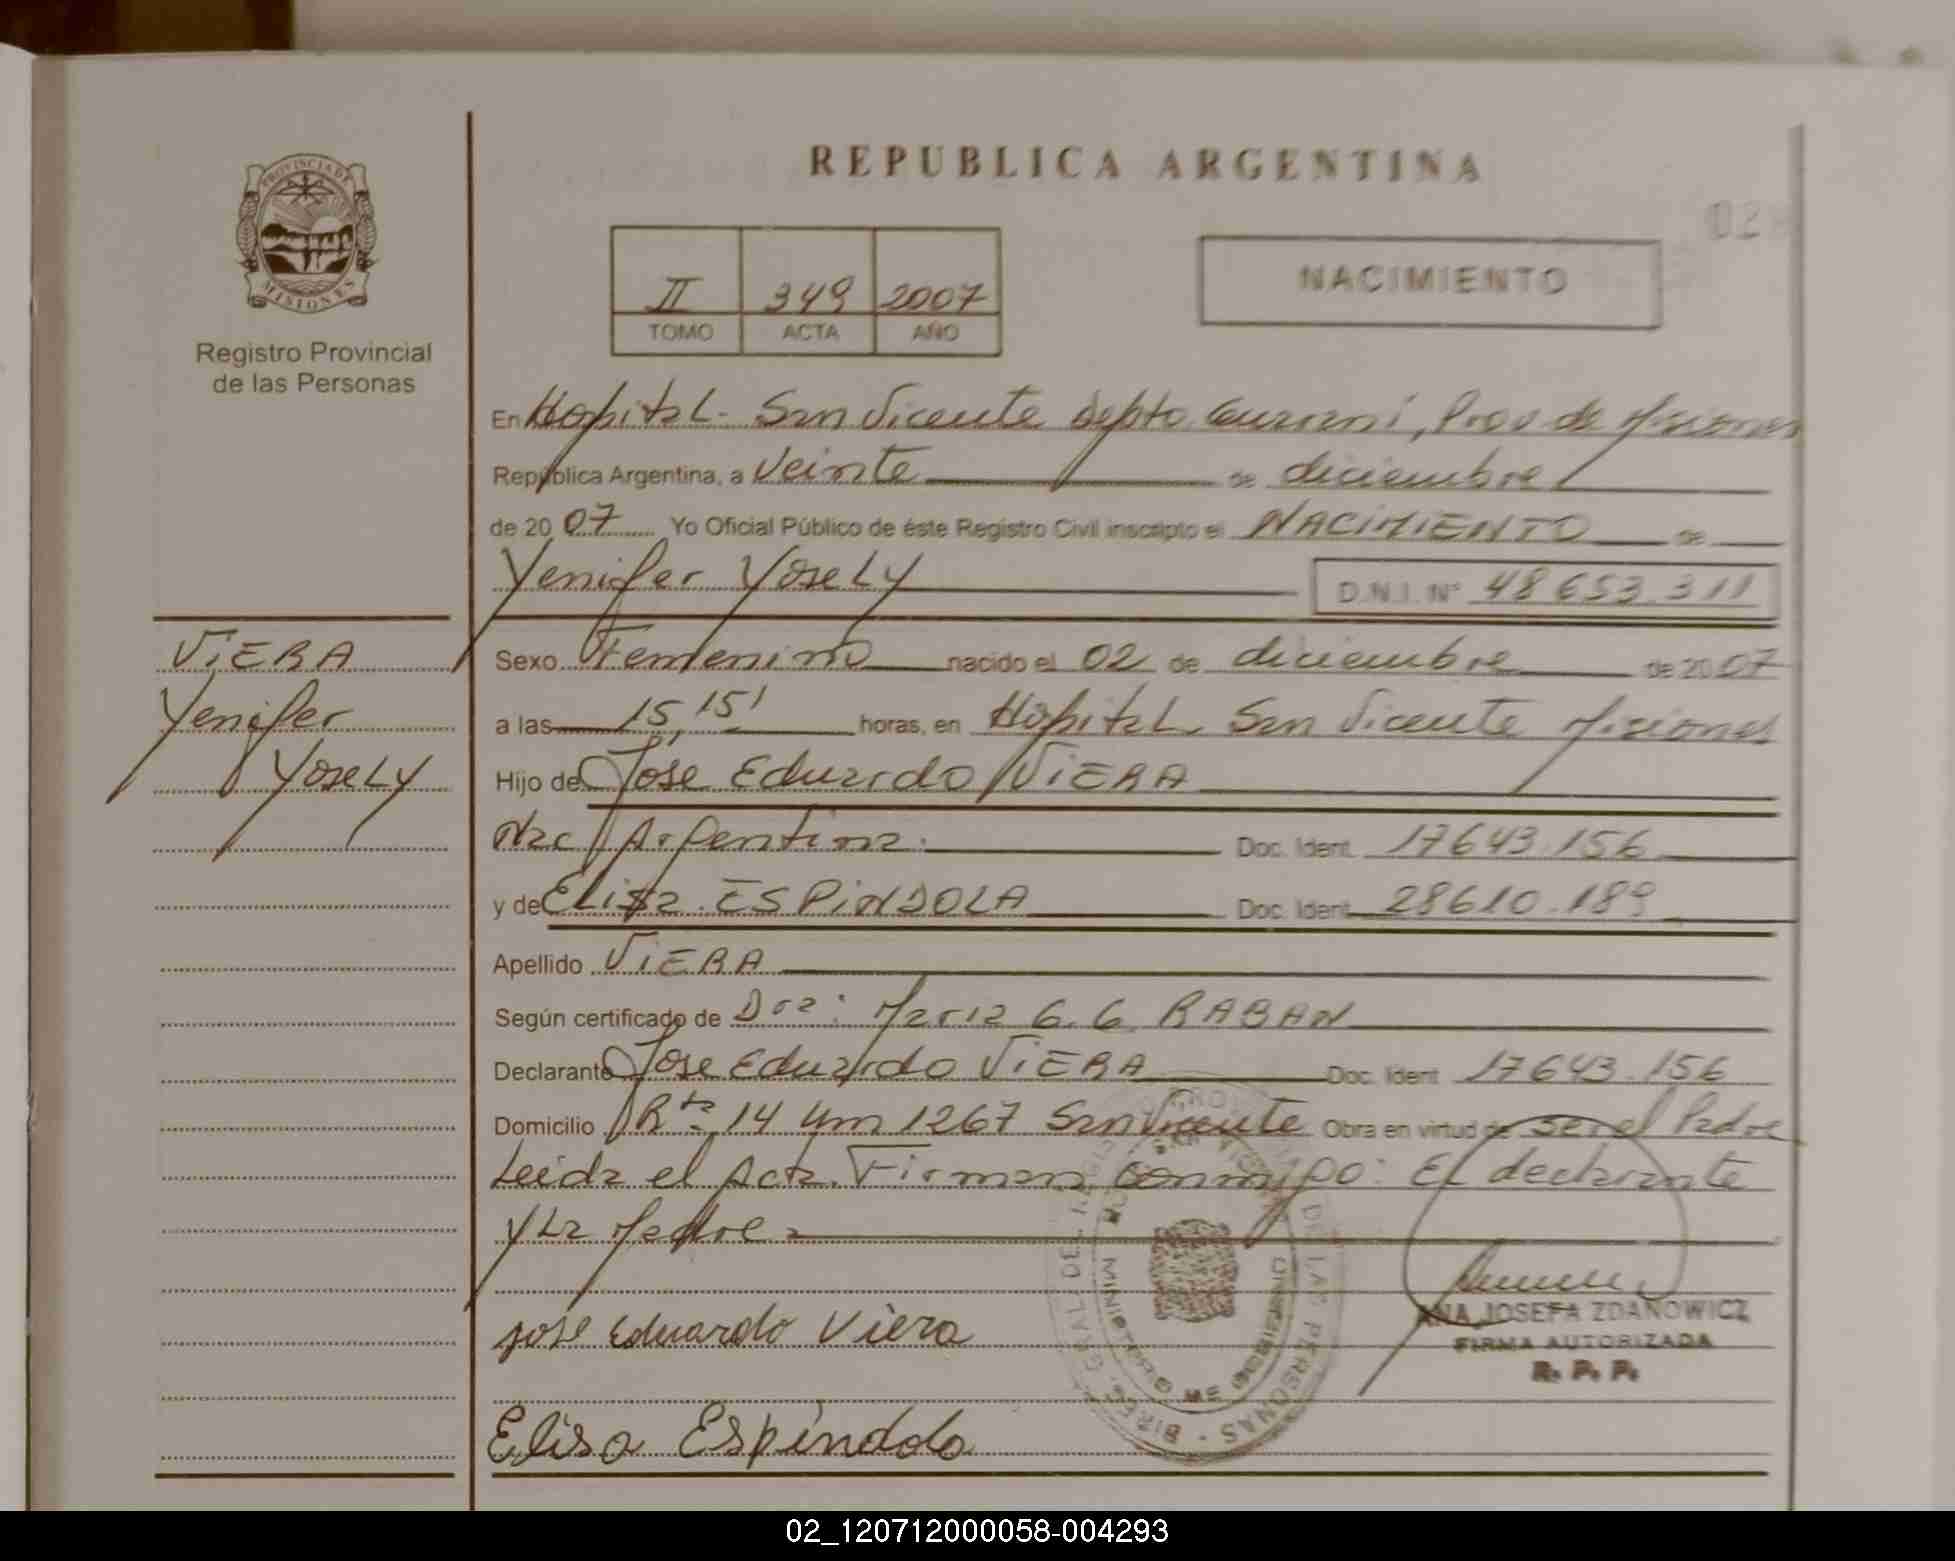 REPUBLICA ARGENTINA
PROVINCIA DE
MISIONES
Registro Provincial
de las Personas
II 349 2007
TOMO ACTA AÑO
NACIMIENTO
02
En Hospital San Vicente Depto Guaraní, Prov de Misiones
República Argentina, a Veinte de diciembre
de 20 07 Yo Oficial Público de éste Registro Civil inscripto el NACIMIENTO de
Yenifer Yosely D.N.I. N° 48 653.311
VIERA
Yenifer
Yosely
Sexo Femenino nacido el 02 de diciembre de 20 07
a las 15,15' horas, en Hospital San Vicente Misiones
Hijo de José Eduardo VIERA
Nac Argentina. Doc. Ident. 17643.156
y de Elisa ESPINDOLA Doc. Ident. 28610.189
Apellido VIERA
Según certificado de Dra: Maria G. G. RABAN
Declarante Jose Eduardo VIERA Doc. Ident 17643.156
Domicilio Rta 14 Km 1267 San Vicente Obra en virtud de ser el Padre
Leida el Acta. Firman conmigo: El declarante
y La Madre
jose Eduardo Viera
ANA JOSEFA ZDANOWICZ
FIRMA AUTORIZADA
R. P. P.
Elisa Espíndola
02_120712000058-004293